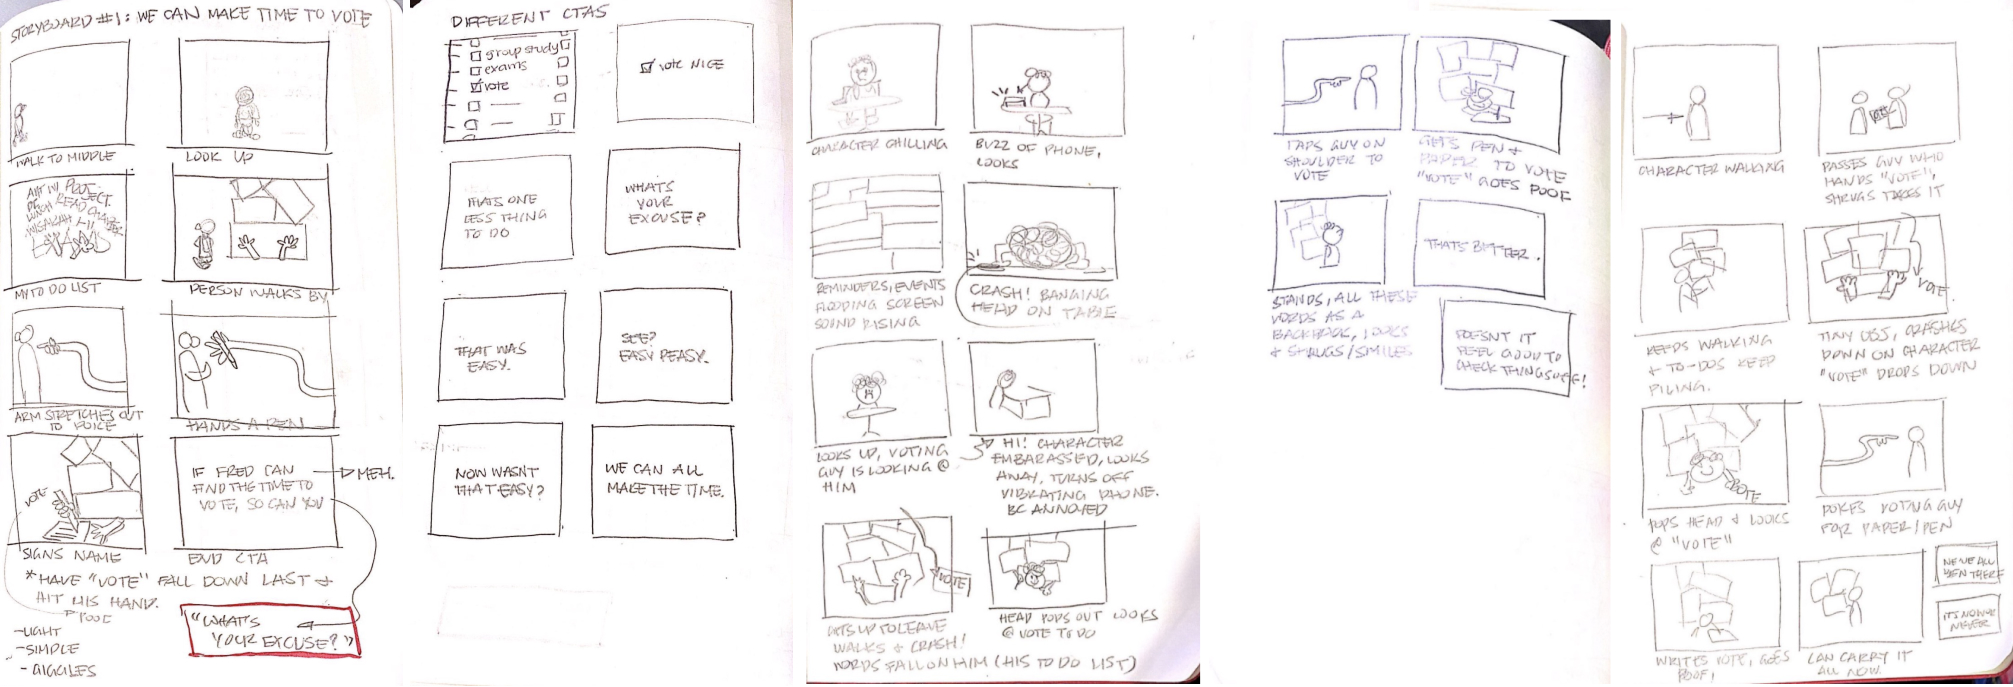 STORYBOARD #1: WE CAN MAKE TIME TO VOTE
WALK TO MIDDLE
LOOK UP
LUNCH READ CHAPTER
MY TO DO LIST
PERSON WALKS BY
ARM STRETCHES OUT
TO
HANDS A PEN
VOTE
SIGNS NAME
IF FRED CAN
FIND THE TIME TO
VOTE, SO CAN YOU
MEH.
END CTA
*HAVE "VOTE" FALL DOWN LAST &
HIT HIS HAND.
POOF
-LIGHT
-SIMPLE
-GIGGLES
"WHAT'S
YOUR EXCUSE?"
DIFFERENT CTAS
group study
exams
vote
vote NICE
THATS ONE
LESS THING
TO DO
WHATS
YOUR
EXCUSE?
THAT WAS
EASY.
SEE?
EASY PEASY.
NOW WASNT
THAT EASY?
WE CAN ALL
MAKE THE TIME.
CHARACTER CHILLING
BUZZ OF PHONE,
LOOKS
REMINDERS, EVENTS
FLOODING SCREEN
SOUND RISING
CRASH! BANGING
HEAD ON TABLE
LOOKS UP, VOTING
GUY IS LOOKING @
HIM
HI! CHARACTER
EMBARASSED, LOOKS
AWAY, TURNS OFF
VIBRATING PHONE.
BC ANNOYED
VOTE
GETS UP TO LEAVE
WALKS & CRASH!
WORDS FALL ON HIM (HIS TO DO LIST)
HEAD POPS OUT LOOKS
@ VOTE TO DO
TAPS GUY ON
SHOULDER TO
VOTE
GETS PEN &
PAPER TO VOTE
"VOTE" GOES POOF
STANDS, ALL THESE
WORDS AS A
BACKPACK, LOOKS
& SHRUGS/SMILES
THATS BETTER.
DOESNT IT
FEEL GOOD TO
CHECK THINGS OFF!
CHARACTER WALKING
VOTE
PASSES GUY WHO
HANDS "VOTE",
SHRUGS TAKES IT
KEEPS WALKING
& TO-DOS KEEP
PILING.
VOTE
TINY OBJ, CRASHES
DOWN ON CHARACTER
"VOTE" DROPS DOWN
VOTE
POPS HEAD & LOOKS
@ "VOTE"
POKES VOTING GUY
FOR PAPER/PEN
WRITES VOTE, GOES
POOF!
CAN CARRY IT
ALL NOW.
WE'VE ALL
BEEN THERE
ITS NOW OR
NEVER